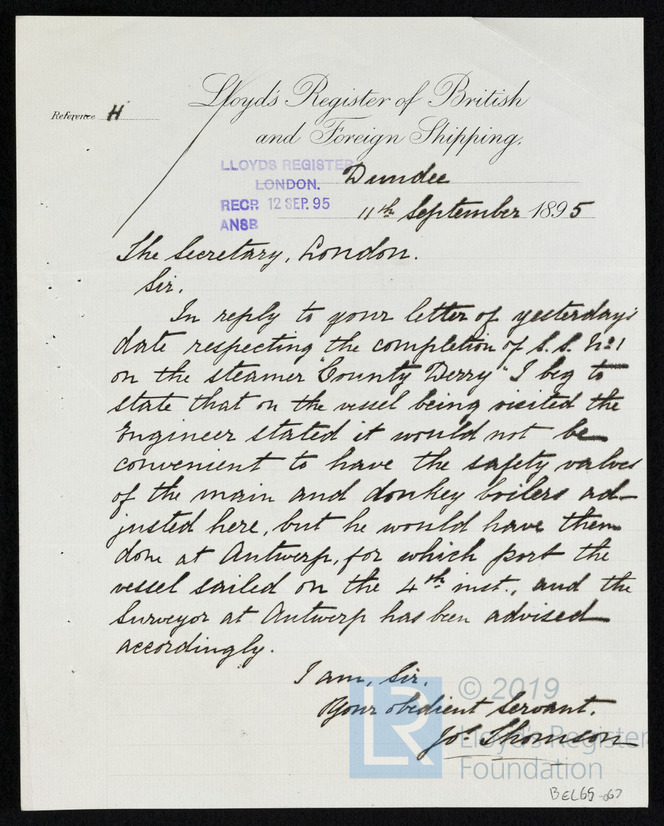 Lloyd's Register of British
and Foreign Shipping.
Reference H
LLOYDS REGISTER
LONDON.
RECD. 12 SEP. 95
ANSD
Dundee
11th September 1895
The Secretary, London.
Sir.
In reply to your letter of yesterday's
date respecting the completion of S.S. No1
on the steamer "County Derry" I beg to
state that on the vessel being visited the
Engineer stated it would not be
convenient to have the safety valves
of the main and donkey boilers ad-
justed here, but he would have them
done at Antwerp, for which port the
vessel sailed on the 4th inst., and the
Surveyor at Antwerp has been advised
accordingly.
I am, Sir.
Your obedient Servant.
Jos. Thomson
LR
© 2019
Lloyd's Register
Foundation
BEL65-67